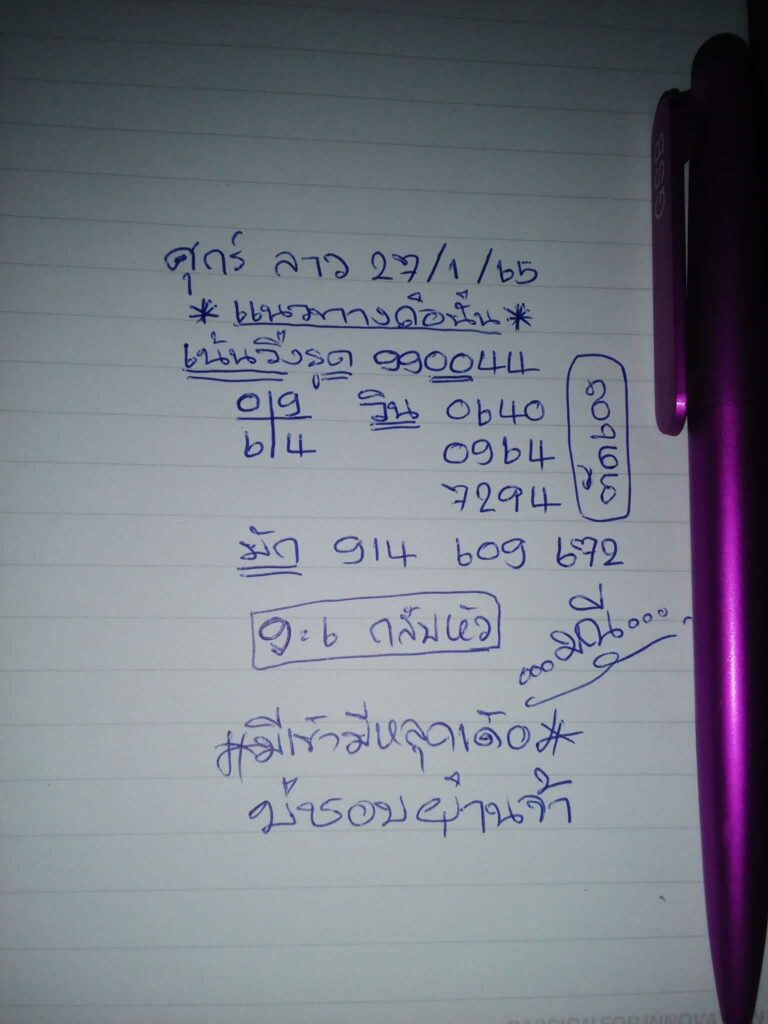 ศุกร์ ลาว 27/1/65
*แนวทางคือนั้น*
เน้นวิ่งรูด 990044
0|9 วิน 0640
6|4 0964
7294
มัก 914 609 672
9:6 กลับหัว
...มณี...
#มีเข้ามีหลุดเด้อ#
บ่ชอบผ่านจ้า
GSB
PASSION FOR INNOVATION